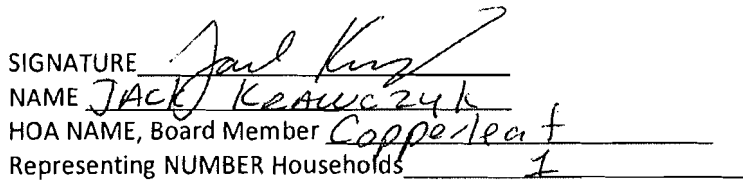 SIGNATURE Jack
NAME JACK KRAWCZYK
HOA NAME, Board Member Copperleaf
Representing NUMBER Households 1